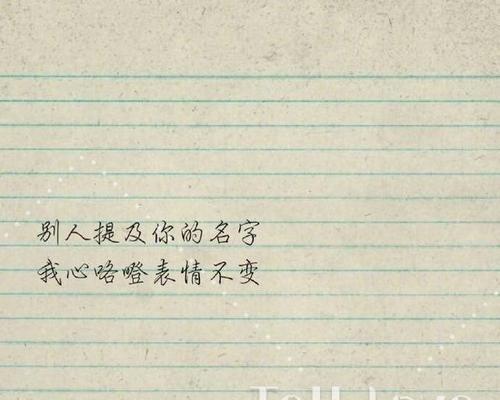 别人提及你的名字
我心咯噔表情不变